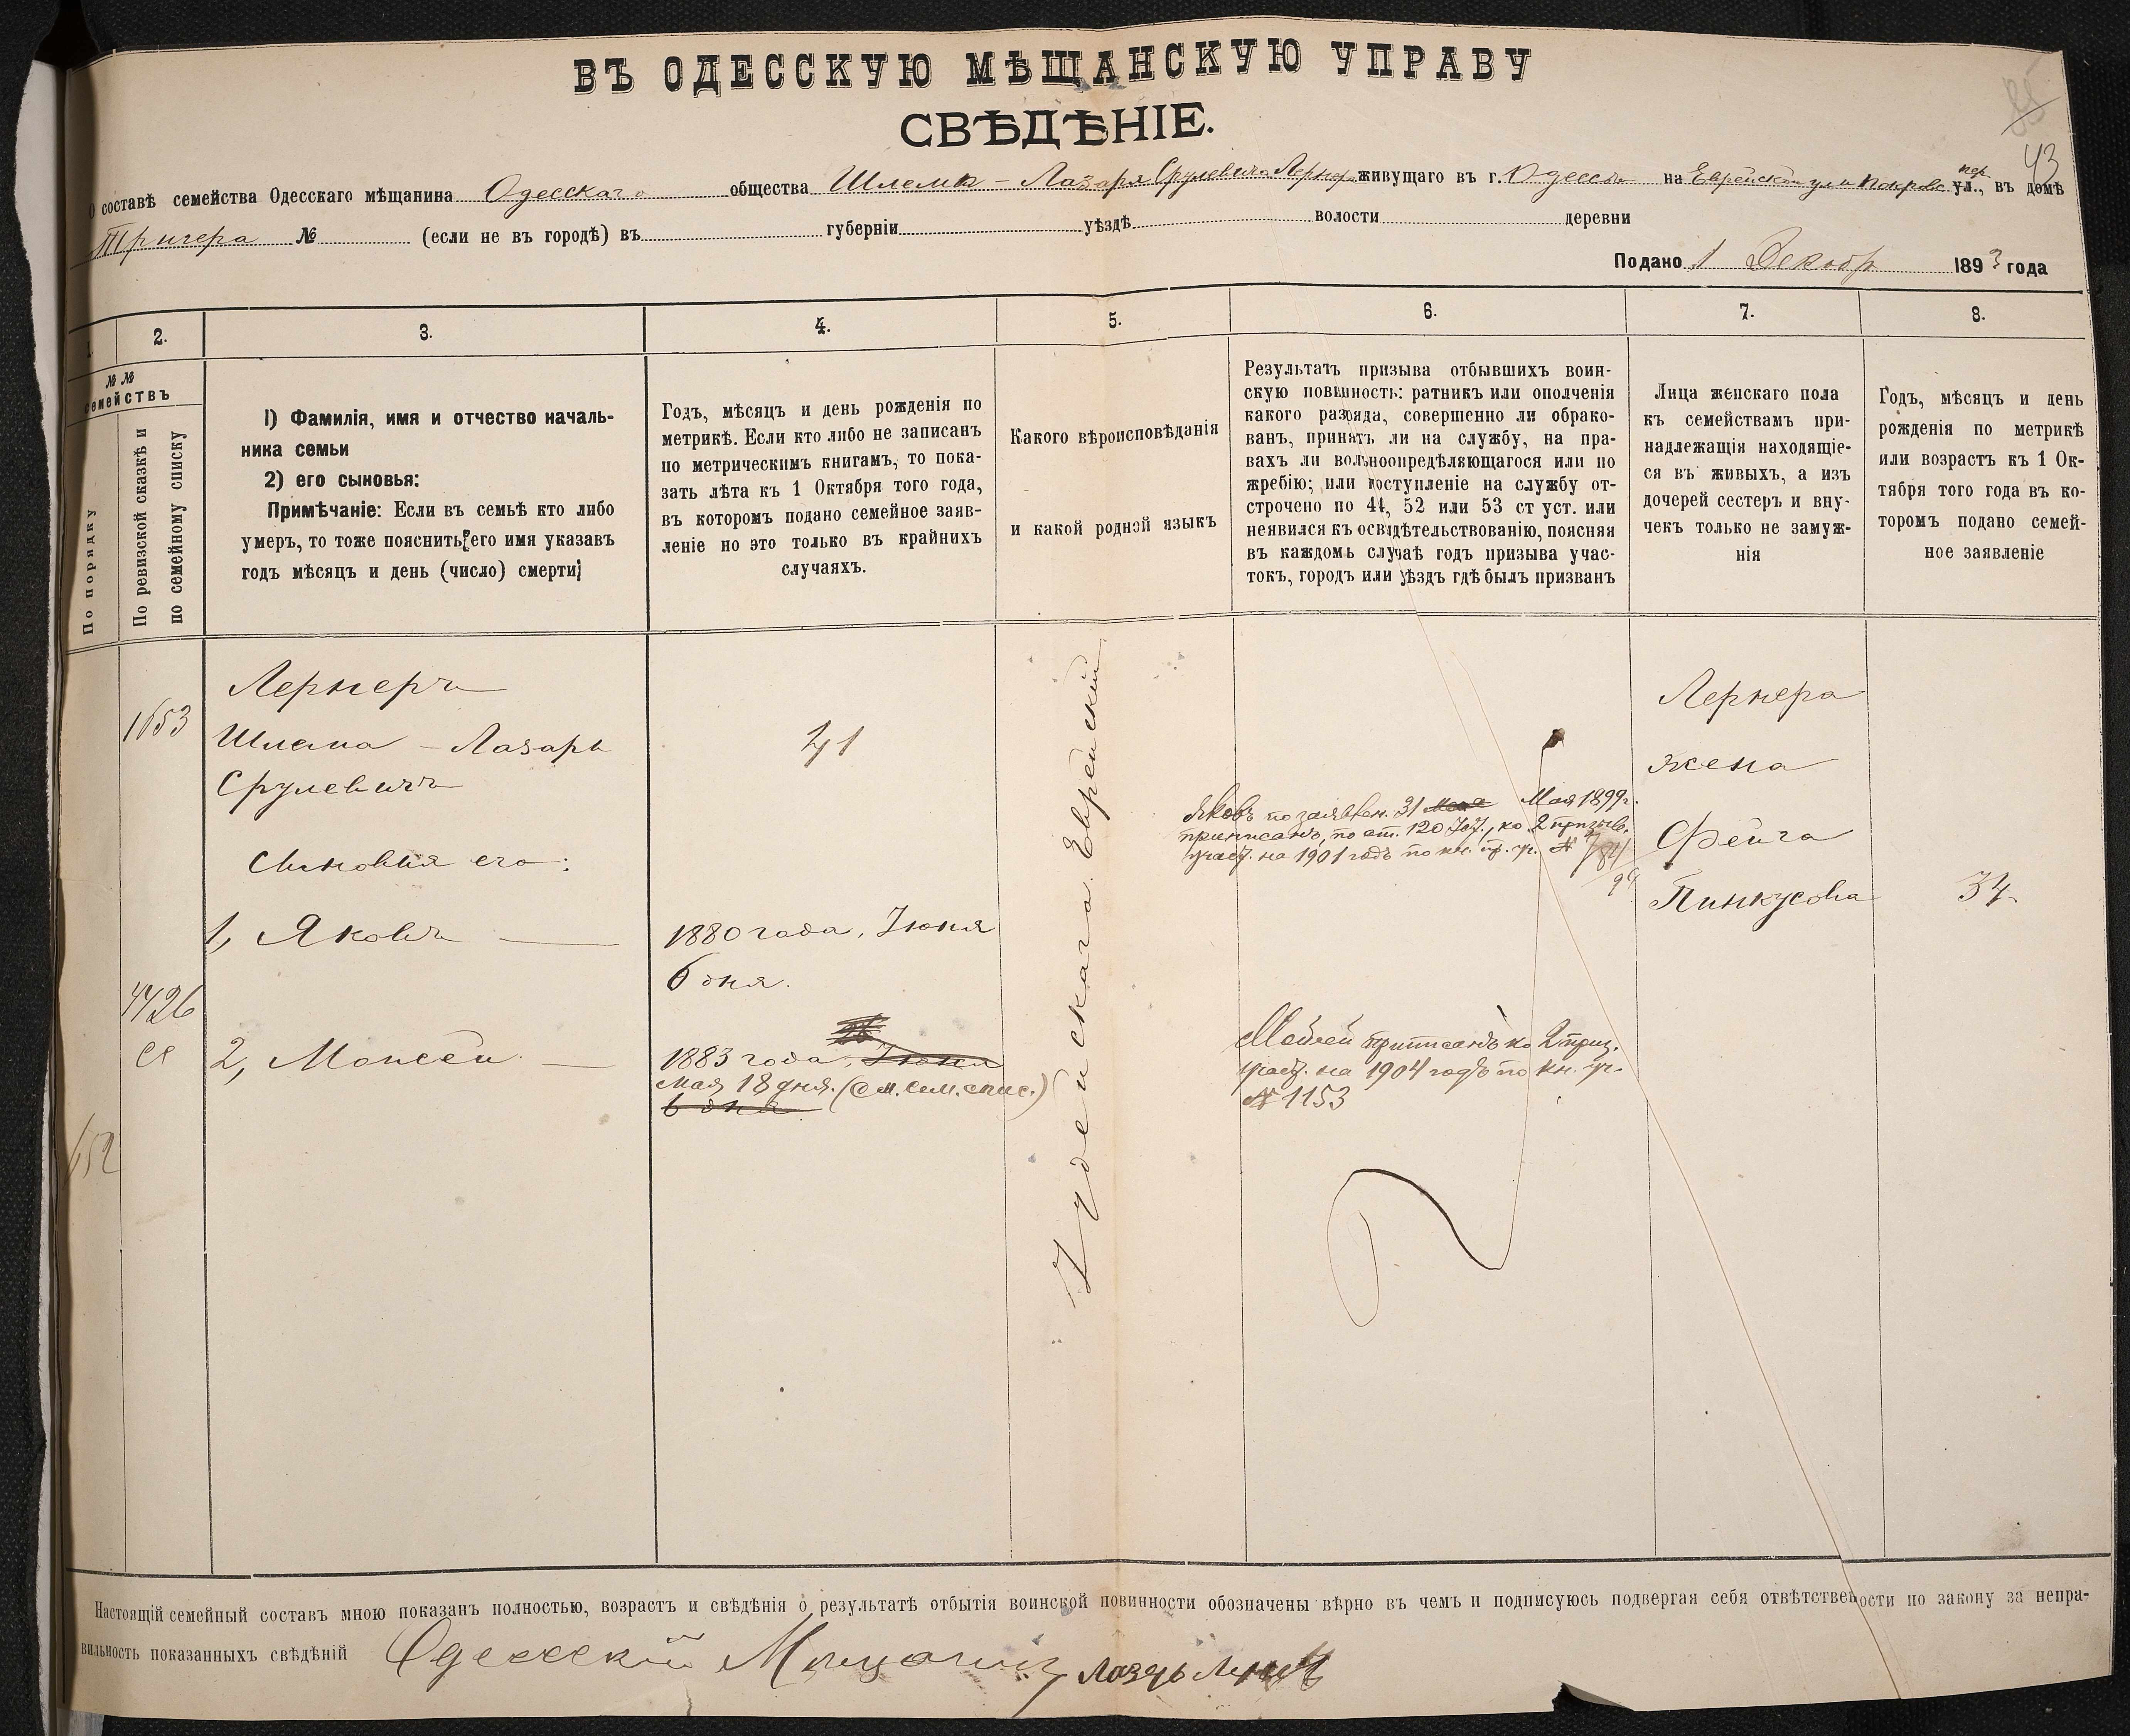 ВЪ ОДЕССКУЮ МѢЩАНСКУЮ УПРАВУ
СВѢДѢНІЕ.
43
О составѣ семейства Одесскаго мѣщанина Одесскаго общества Шлема - Лазаря Срулевича Лернер живущаго въ г. Одессы на Еврейской ул и Покровс пер ул., въ домѣ
Тригера № (если не въ городѣ) въ губерніи уѣздѣ волости деревни
Подано 1 Декабр 1893 года
1. 2. 3. 4. 5. 6. 7. 8.
№ №
семействъ
По порядку
По ревизской сказкѣ и
по семейному списку
1) Фамилія, имя и отчество началь-
ника семьи
2) его сыновья:
Примѣчаніе: Если въ семьѣ кто либо
умеръ, то тоже пояснить его имя указавъ
годъ мѣсяцъ и день (число) смерти;
Годъ, мѣсяцъ и день рожденія по
метрикѣ. Если кто либо не записанъ
по метрическимъ книгамъ, то пока-
зать лѣта къ 1 Октября того года,
въ которомъ подано семейное заяв-
леніе но это только въ крайнихъ
случаяхъ.
Какого вѣроисповѣданія
и какой родной языкъ
Результатъ призыва отбывшихъ воин-
скую повинность: ратникъ или ополченія
какого разряда, совершенно ли обрако-
ванъ, принятъ ли на службу, на пра-
вахъ ли вольноопредѣляющагося или по
жребію; или поступленіе на службу от-
строчено по 44, 52 или 53 ст уст. или
неявился къ освидѣтельствованію, поясняя
въ каждомъ случаѣ годъ призыва учас-
токъ, городъ или уѣздъ гдѣ былъ призванъ
Лица женскаго пола
къ семействамъ при-
надлежащія находящіе-
ся въ живыхъ, а изъ
дочерей сестеръ и вну-
чекъ только не замуж-
нія
Годъ, мѣсяцъ и день
рожденія по метрикѣ
или возрастъ къ 1 Ок-
тября того года въ ко-
торомъ подано семей-
ное заявленіе
1653
Лернеръ
Шлема - Лазарь
Срулевичъ
41
Сыновья его:
1, Яковъ
1880 года, Іюня
6 дня.
4426
2, Моисей
1883 года, Іюня
Мая 18 дня. (см. сем. спис.)
6 дня
652
Іудейскаго. Еврейскій
Яковъ по заявлен. 31 Мая Мая 1899г.
приписанъ, по ст. 120 Уст., ко 2 призыв.
участ. на 1901 годъ по кн. пр. уч. №
Мойсей приписанъ ко 2 приз.
участ. на 1904 годъ по кн. уч.
№ 1153
Лернера
жена
Фейга
Пинкусова
34.
Настоящій семейный составъ мною показанъ полностью, возрастъ и свѣдѣнія о результатѣ отбытія воинской повинности обозначены вѣрно въ чемъ и подписуюсь подвергая себя отвѣтствености по закону за непра-
вильность показанныхъ свѣдѣній Одесскій Мещанин Лазарь Лернеръ